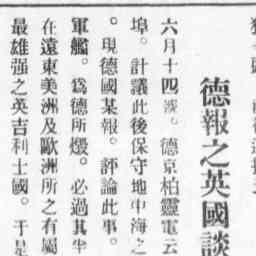 德報之英國談
六月十四號。德京柏靈電云
埠。計議此後保守地中海之
。現德國某報。評論此事。
軍艦。爲德所燬。必過其半
在遠東美洲及歐洲所之有屬
最雄强之英吉利士國。于是